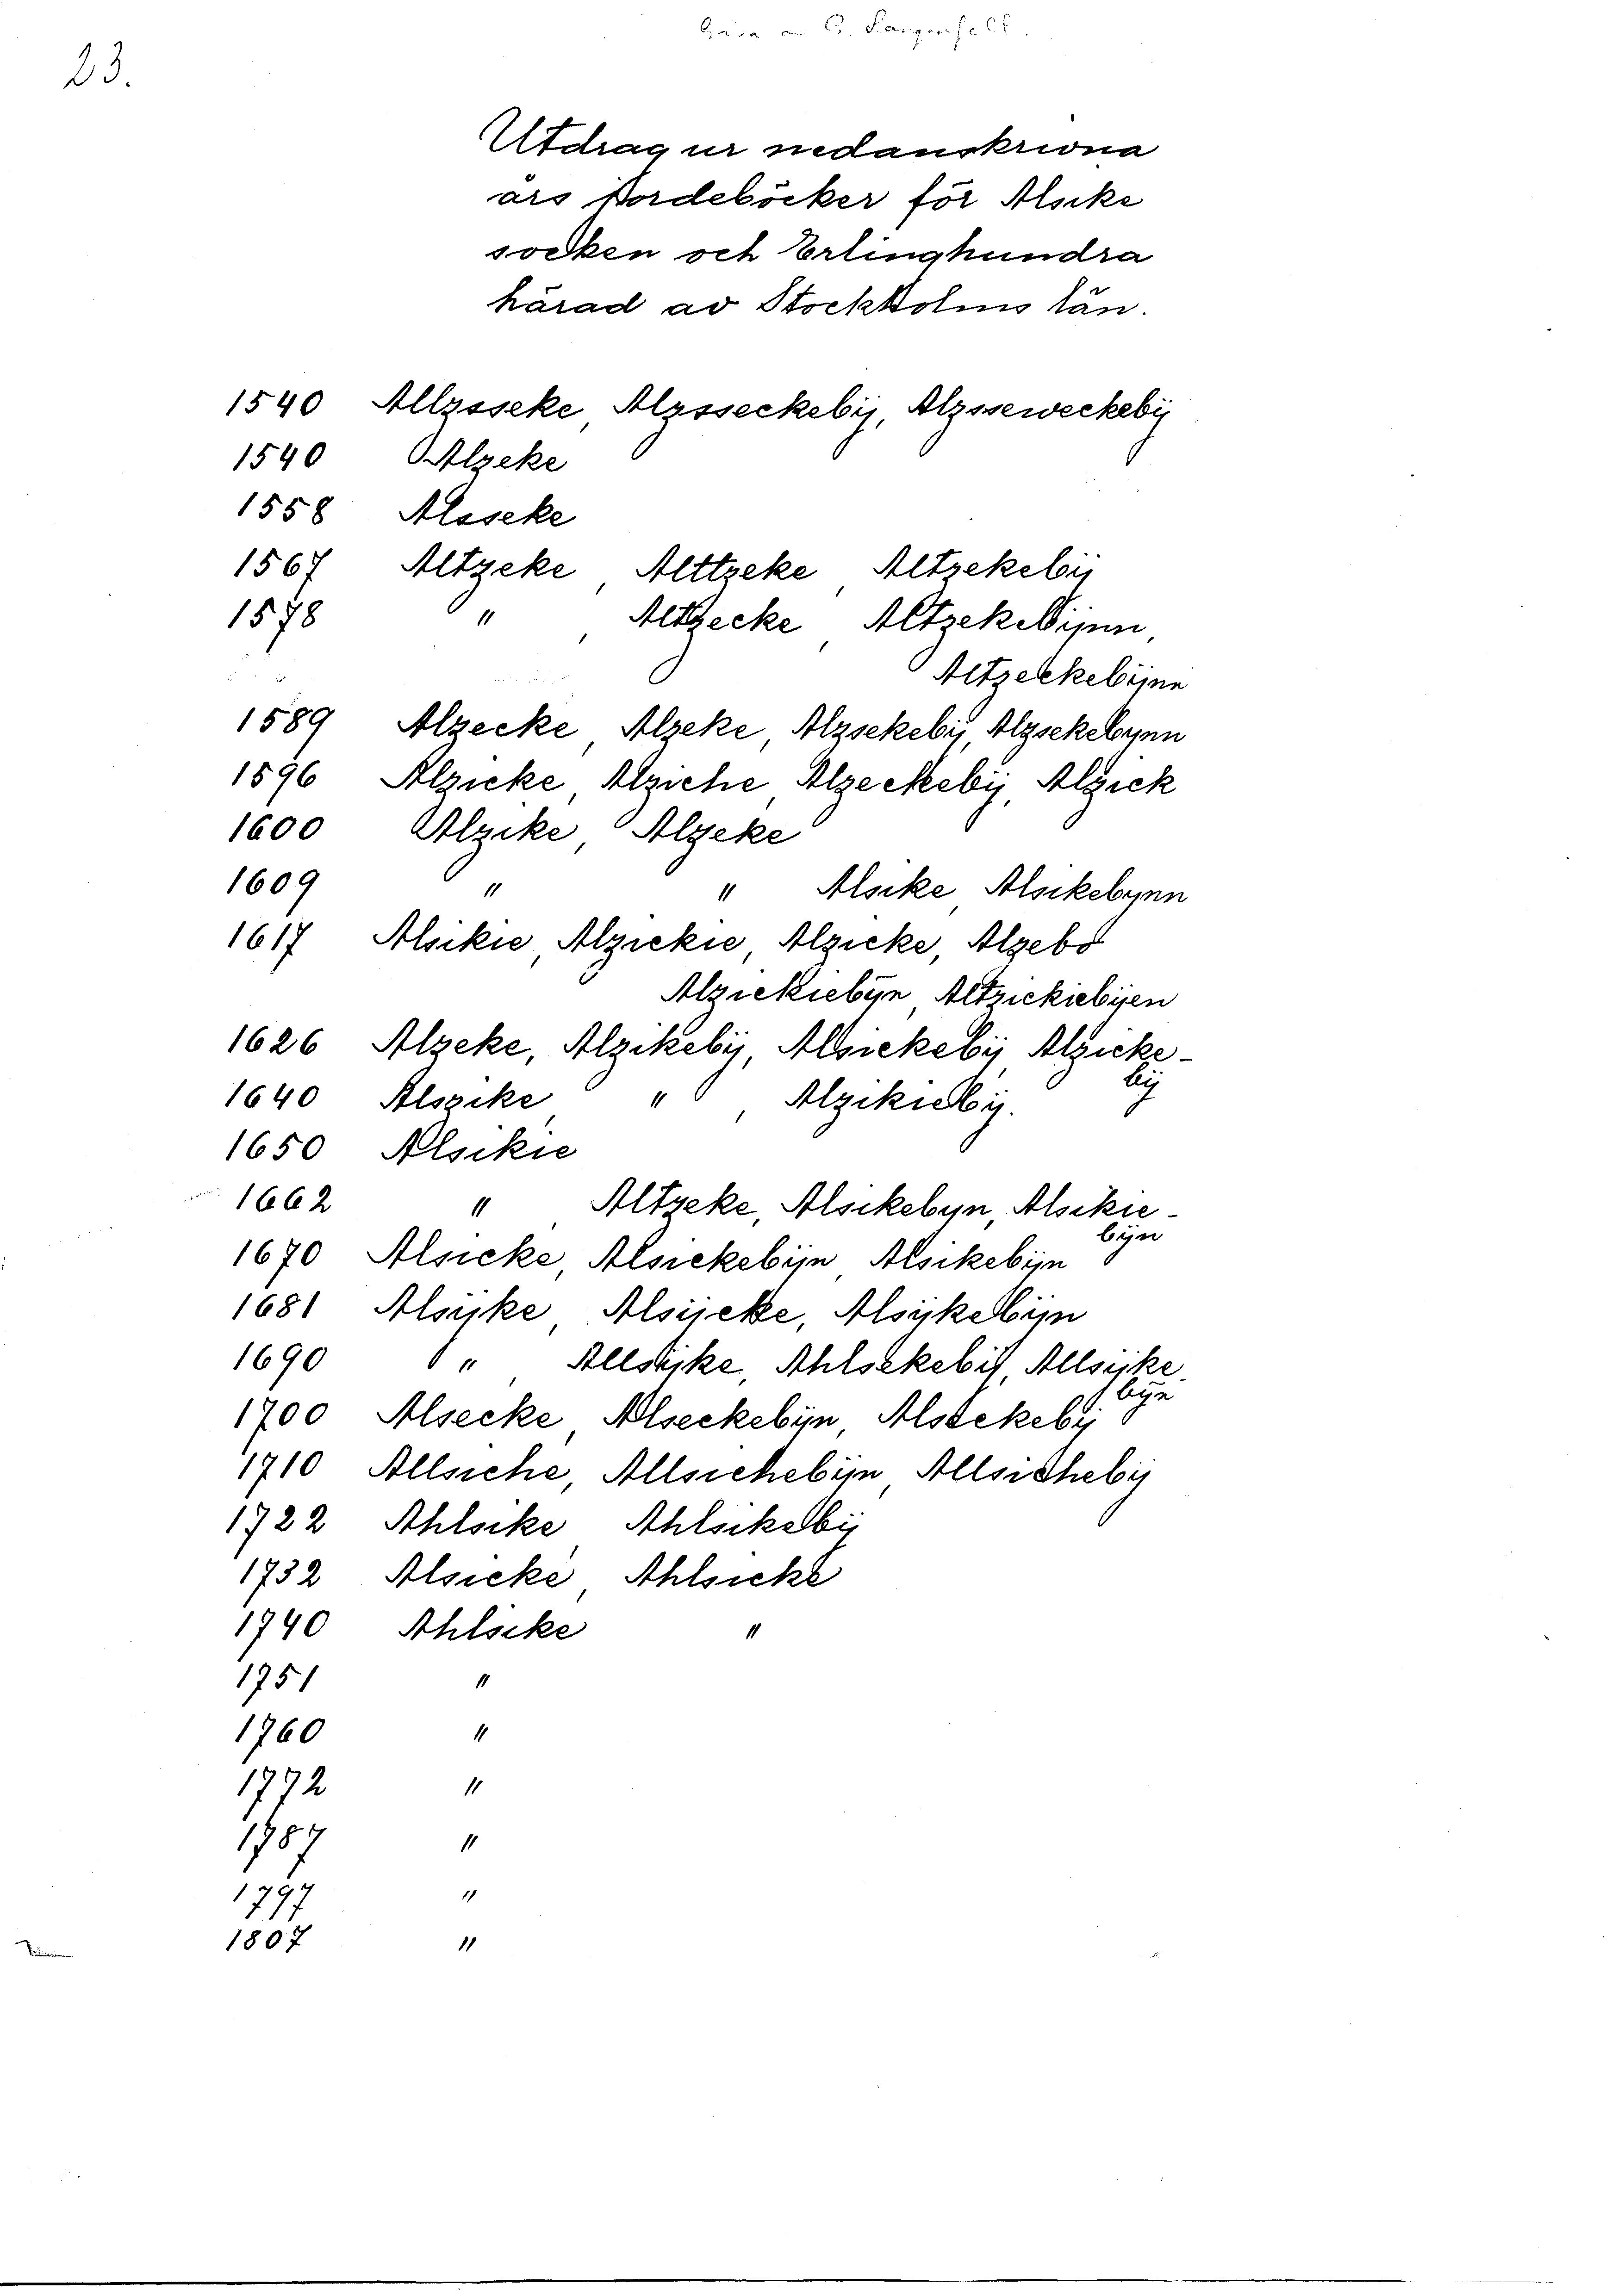 23.
Utdrag ur nedanskrivna
års Jordeböcker för Alsike
socken och Erlinghundra
härad av Stockholms län.
1540 Allzsseke, Alzsseckebÿ, Alzsseweckebÿ
1540 Alzeke
1558 Alsseke
1567 Altzeke, Alttzeke, Altzekebÿ
1578 " , Altzecke, Altzekebÿnn,
Altzeckebÿnn
1589 Alzecke, Alzeke, Alzsekebÿ, Alzsekebynn
1596 Alzicke, Alziche, Alzeckebÿ, Alzick
1600 Alzike, Alzeke
1609 " " Alsike, Alsikebynn
1617 Alsikie, Alzickie, Alzicke, Alzebo
Alzickiebÿn, Altzickiebÿen
1626 Alzeke, Alzikebÿ, Alsickebÿ, Alzicke-
bÿ
1640 Alszike, " , Alzikiebÿ.
1650 Alsikie
1662 " Altzeke, Alsikebyn, Alsikie-
bÿn
1670 Alsicke, Alsickebÿn, Alsikebÿn
1681 Alsÿke, Alsÿcke, Alsÿkebÿn
1690 " , Allsÿke, Ahlsekebÿ, Allsÿke-
bÿn
1700 Alsecke, Alseckebÿn, Alseckebÿ
1710 Allsiche, Allsichebÿn, Allsichebÿ
1722 Ahlsike, Ahlsikebÿ
1732 Alsicke, Ahlsicke
1740 Ahlsike "
1751 "
1760 "
1772 "
1787 "
1797 "
1807 "